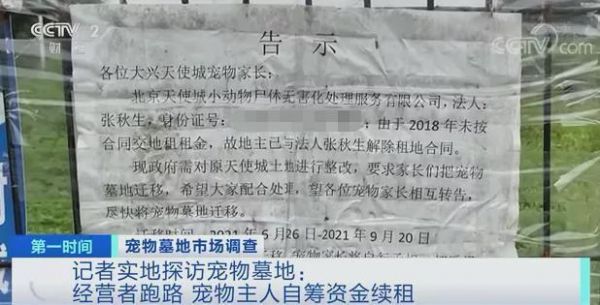 CCTV 2 财经
央视网
cctv.com
告 示
各位大兴天使城宠物家长：
北京天使城小动物尸体无害化处理服务有限公司，法人：
张秋生，身份证号： ；由于2018年未按
合同交地租租金，故地主已与法人张秋生解除租地合同。
现政府需对原天使城土地进行整改，要求家长们把宠物
墓地迁移，希望大家配合处理，望各位宠物家长相互转告，
尽快将宠物墓地迁移。
2021年5月26日-2021年9月20
第一时间 宠物墓地市场调查
记者实地探访宠物墓地：
经营者跑路 宠物主人自筹资金续租